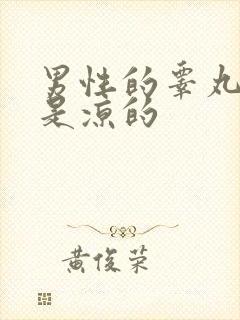 男性的睾丸
是凉的
黄俊荣